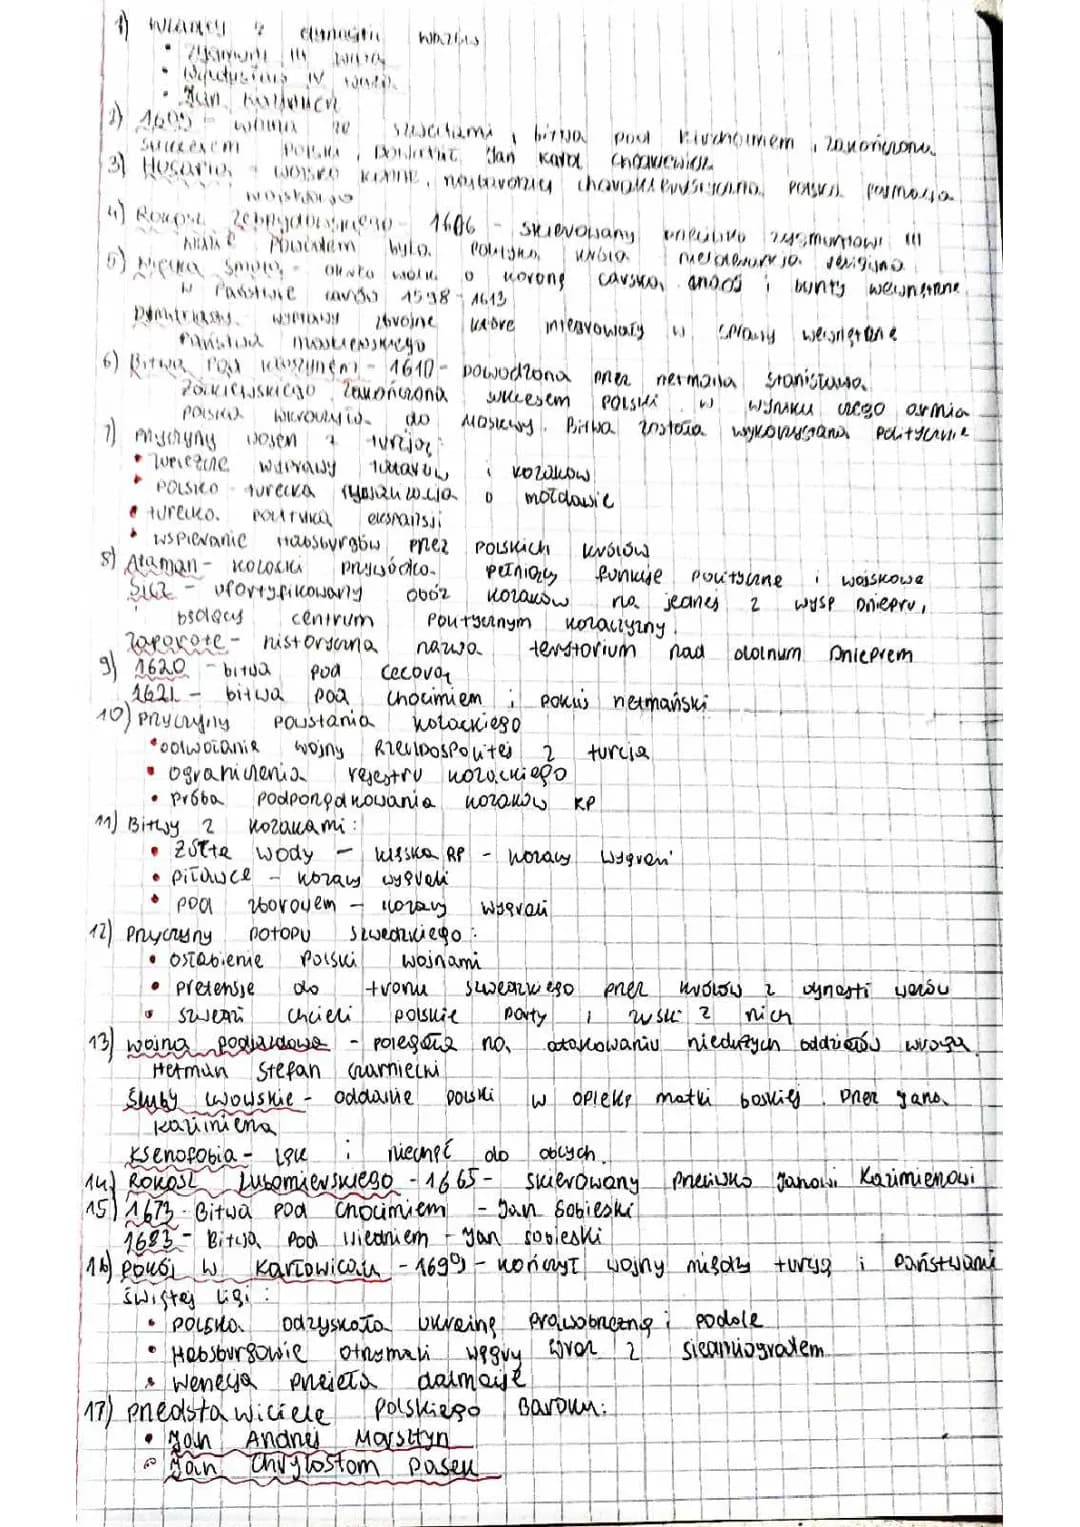 1) Władcy z dynastii Wazów
• Zygmunt III Waza
• Władysław IV Waza
• Jan Kazimierz
2) 1605 - wojna ze szwedami, bitwa pod Kircholmem, zakończona
sukcesem Polski, Dowódca Jan Karol Chodkiewicz
3) Husaria - wojsko konne, najbardziej charakterystyczna polska formacja
wojskowa
4) Rokosz Zebrzydowskiego - 1606 - skierowany przeciwko Zygmuntowi III
Wazie Powodem była polityka króla nietolerancja religijna
5) Wielka Smuta - okres walk o koronę carską, anarchii i bunty wewnętrzne
w Państwie carów 1598 - 1613
Dymitriady wyprawy zbrojne które ingerowały w sprawy wewnętrzne
Państwa moskiewskiego
6) Bitwa pod Kłuszynem - 1610 - dowodzona przez hetmana Stanisława
Żółkiewskiego zakończona sukcesem Polski w wyniku czego armia
polska wkroczyła do Moskwy. Bitwa została wykorzystana politycznie
7) Przyczyny wojen z turcją:
• łupieżcze wyprawy tatarów i kozaków
• polsko - turecka rywalizacja o mołdawie
• turecka polityka ekspansji
• wspieranie Habsburgów przez polskich królów
8) Ataman - kozacki przywódca pełniący funkcje polityczne i wojskowe
Sicz - ufortyfikowany obóz kozaków na jednej z wysp Dniepru,
będący centrum politycznym kozaczyzny.
Zaporoże - historyczna nazwa terytorium nad dolnum Dnieprem
9) 1620 - bitwa pod Cecorą
1621 - bitwa pod chocimiem i pokój hetmański
10) Przyczyny powstania kozackiego
• odwołanie wojny Rzeczpospolitej z turcją
• ograniczenia rejestru kozackiego
• próba podporządkowania kozaków RP
11) Bitwy z kozakami:
• Żółte Wody - klęska RP - kozacy wygrali
• piławce - kozacy wygrali
• pod zborowem - kozacy wygrali
12) Przyczyny potopu szwedzkiego:
• osłabienie Polski wojnami
• pretensje do tronu szwedzkiego przez królów z dynasti wazów
• szwedzi chcieli polskie porty i zysk z nich
13) wojna podjazdowa - polegała na atakowaniu niedużych oddziałów wroga
Hetman Stefan Czarniecki
Śluby Lwowskie - oddanie polski w opiekę matki boskiej. przez Jana
Kazimierza
Ksenofobia - lęk i niechęć do obcych.
14) Rokosz Lubomierskiego - 1665 - skierowany przeciwko Janowi Kazimierowi
15) 1673 - Bitwa pod Chocimiem - Jan Sobieski
1683 - Bitwa pod wiedniem - Jan sobieski
16) pokój w Karłowicach - 1699 - kończył wojny między turcją i państwami
świętej Ligi:
• polska odzyskała ukrainę prawobrzeżną i podole
• Habsburgowie otrzymali węgry wraz z siedmiogrodem
• wenecja przejęła dalmację
17) przedstawiciele polskiego Baroku:
• Jan Andrzej Morsztyn
• Jan Chryzostom pasek